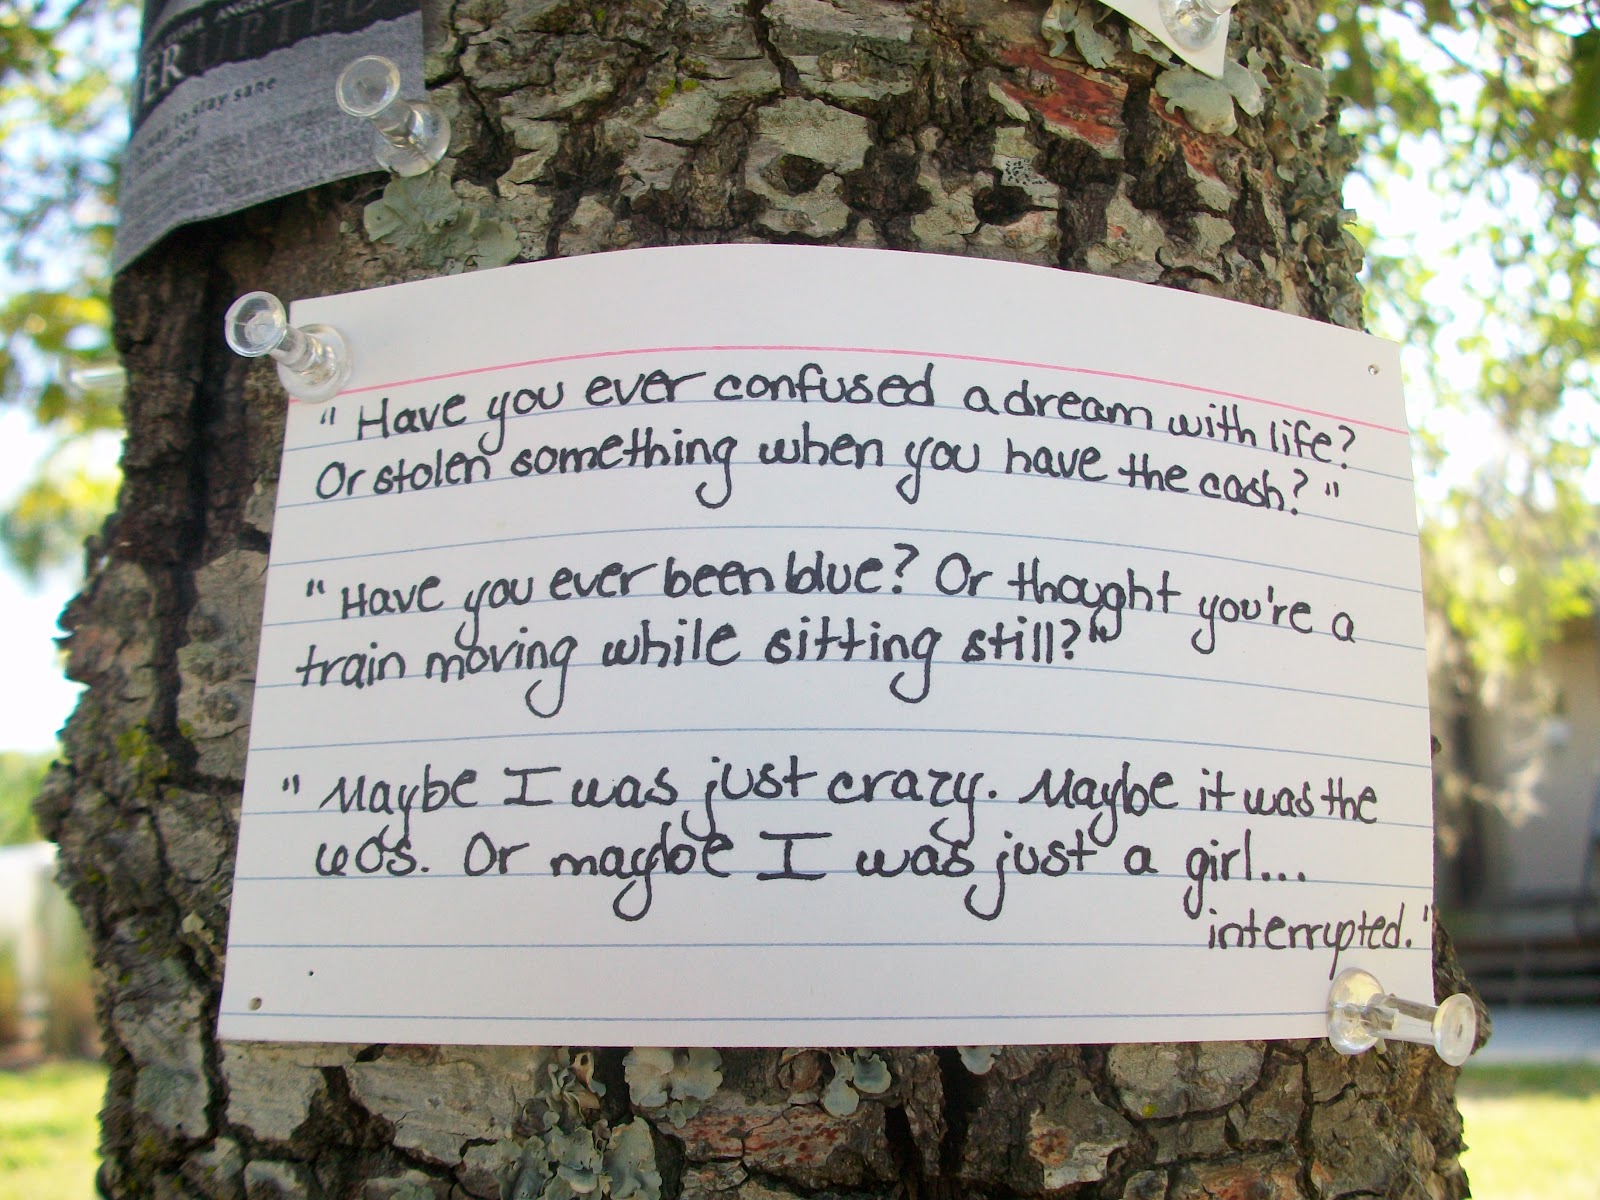 ANGE
ERUPTED
to stay sane
"Have you ever confused a dream with life?
Or stolen something when you have the cash?"
"Have you ever been blue? Or thought you're a
train moving while sitting still?"
"Maybe I was just crazy. Maybe it was the
60s. Or maybe I was just a girl...
interrupted."